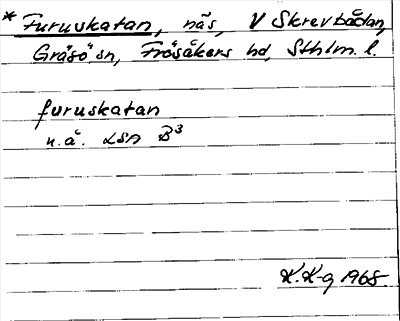 * Furuvkatan, näs, V Skrevbådan,
Gräsö sn, Frösåkers hd, Sthlm. l.
furuskatan
n.ä. LSA B³
K.K-g 1968.